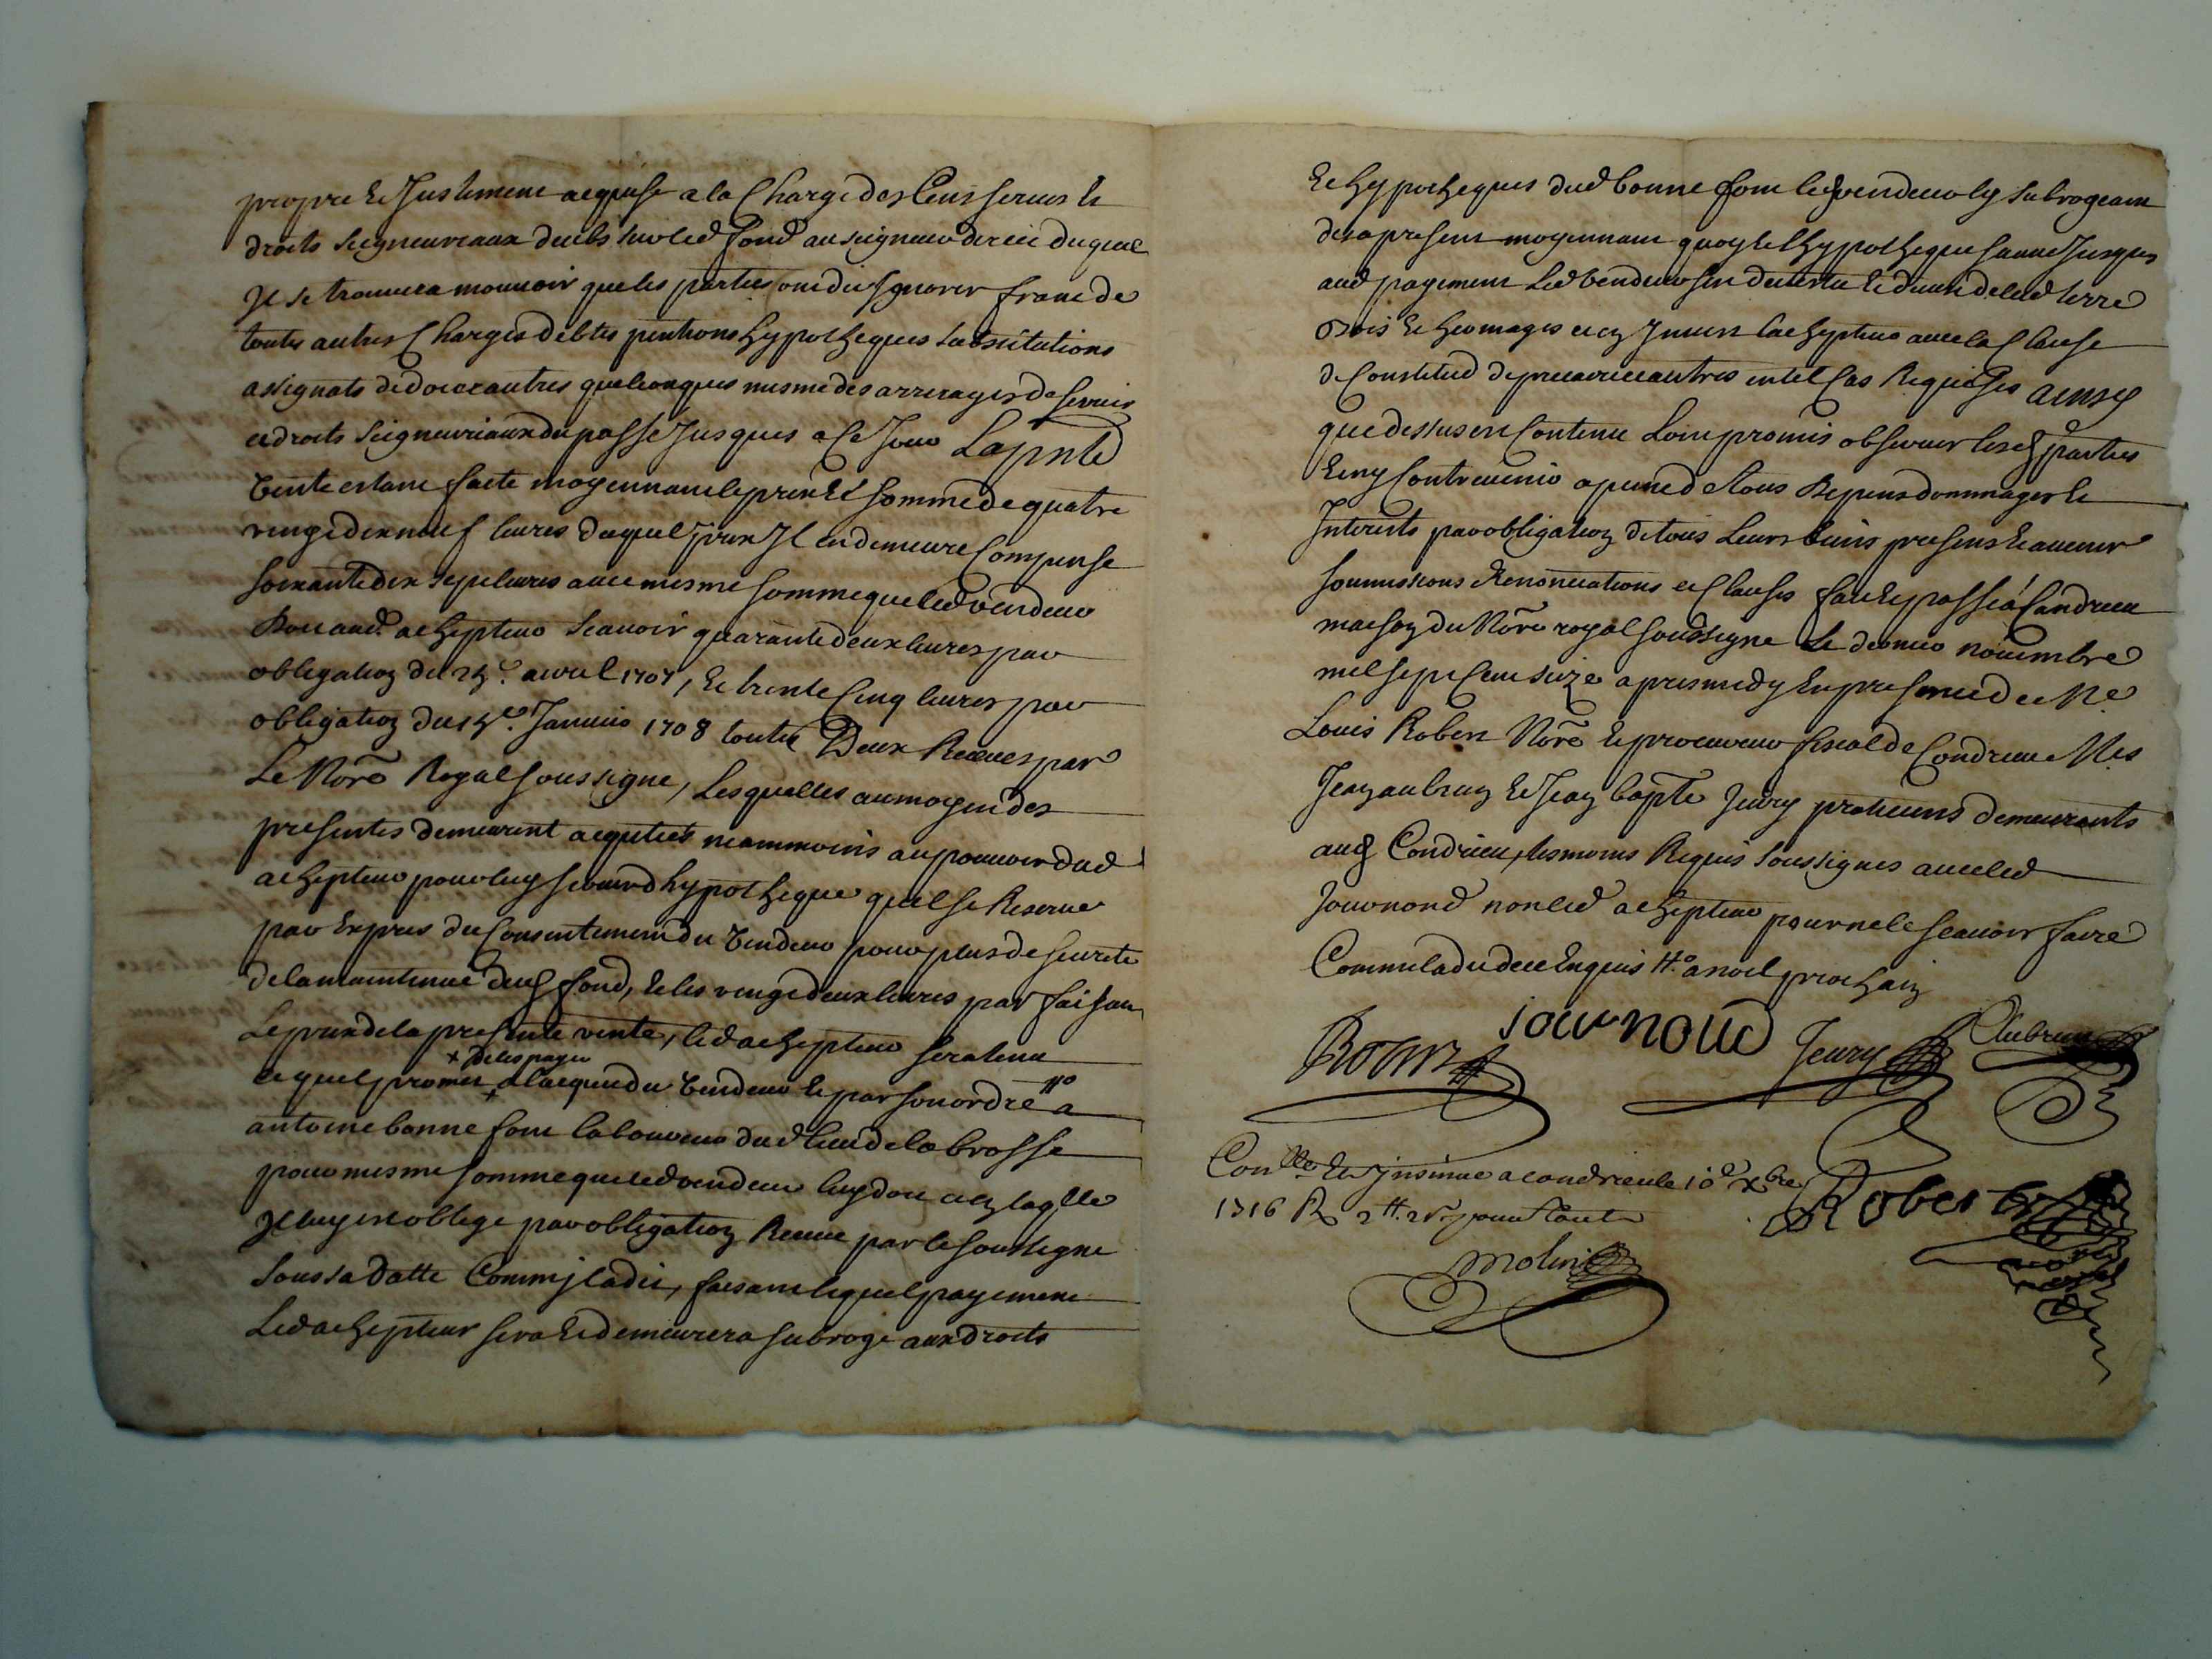 propre et Justement acquise a la Charge des Cens servis et
droits Seigneureaux deubs sur led fond au seigneur direct duquel
Jl se trouvera mouvoir que les parties ont dit Jgnorer franc de
toutes autres Charges debtes pentions hypotheques substitutions
assignats de doct et autres quelconques mesme des arrerages de servis
et droits Seigneuriaux du passé Jusques a Ce Jour La pnte
Vente estant faite moyennant le prix Et somme de quatre
vingt dix neuf livres duquel prix Jl en demeure Compensé
soixante dix sept livres avec mesme somme que led vendeur
Doit aud. achepteur scavoir quarante deux livres par
obligation du avril 1707, Et trente Cinq livres par
obligation du Janvier 1708 toutes Deux Receues par
Le Nore Royal soussigné, Lesquelles au moyen des
presentes demeurent acquitées neammoins au pouvoir dud
achepteur pour luy servir d hypotheque quil se Reserve
par Expres du Consentement du Vendeur pour plus de seureté
de la maintenue dud fond, et les vingt deux livres parfaisant
Le prix de la presente vente, led achepteur sera tenu
+ de les payer
et quel promet + a lacquit du Vendeur et par son ordre a
antoine bonnefont laboureur dud lieu de la brosse
pour mesme somme que led vendeur luy doit et en laqlle
Jl luy est obligé par obligation Receue par le soussigné
sous sa datte Comm jl a dit, faisant lequel payement
Led achepteur sera Et demeurera subrogé aux droits
Et hypotheques dud bonnefont led vendeur ly subrogeant
des a present moyennant quoy et lhypotheque sauve Jusques
aud payement Led vendeur sen devertu et devest de lad terre
Bois et hermages et en Jnvest lachepteur avec la Clause
de Constitud de precaire et autres en tel Cas Requises ainsy
que dessus est Contenu Lont promis observer lesd parties
Et ny Contrevenir a peine de tous Depens dommages et
Interests par obligation de tous Leurs biens presens et avenir
soumissions Renonciations et Clauses fait et passé a Condrieu
maison du Nore royal soussigné Le dernier novembre
mil sept Cent seize apres midy En presence de Me
Louis Robert Nore et procureur fiscal de Condrieu Mes
Jean aubrun et Jean bapte Jeury praticiens demeurants
aud Condrieu, tesmoins Requis soussignes avec led
Journoud non led achepteur pour ne le scavoir faire
Comm il a dit de ce Enquis a noel prochain
Robert Journoud Jeury Aubrun
Conllé Et jnsinué a condrieu le 10e xbre
1716 R 2tt. pour tout
Robert
Molin